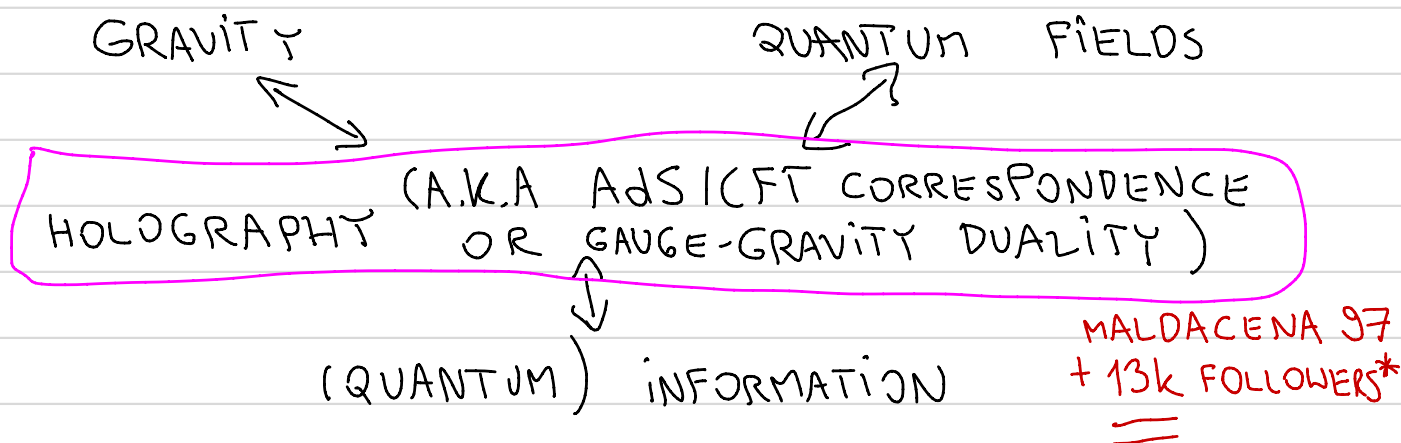 GRAVITY QUANTUM FIELDS
(A.K.A AdS/CFT CORRESPONDENCE
HOLOGRAPHY OR GAUGE-GRAVITY DUALITY)
(QUANTUM) INFORMATION
MALDACENA 97
+ 13k FOLLOWERS*